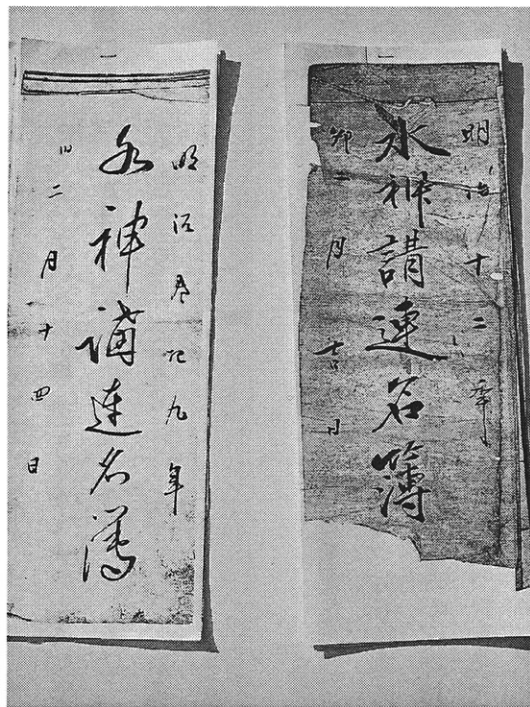 明治十二年
水神講連名簿
卯二月吉日
明治参拾九年
水神講連名簿
旧二月十四日